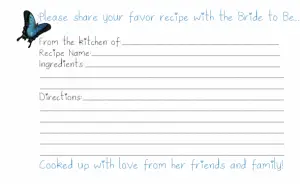 Please share your favor recipe with the Bride to Be...
From the kitchen of:
Recipe Name:
Ingredients:
Directions:
Cooked up with love from her friends and family!